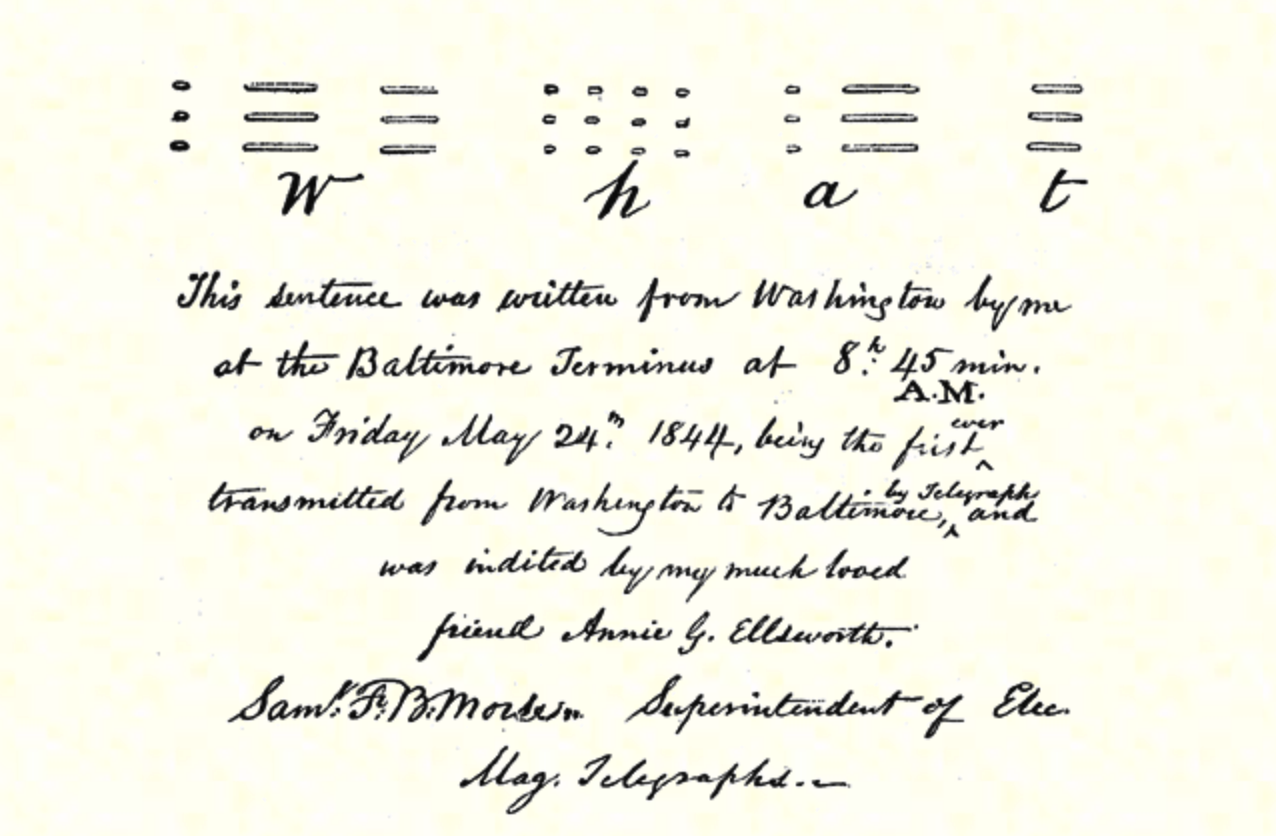 W h a t
This sentence was written from Washington by me
at the Baltimore Terminus at 8.h 45 min.
A.M.
on Friday May 24.th 1844, being the first ever
transmitted from Washington to Baltimore, by Telegraph and
was indited by my much loved
friend Annie G. Ellsworth.
Saml. F. B. Morse Superintendent of Elec.
Mag. Telegraphs.—